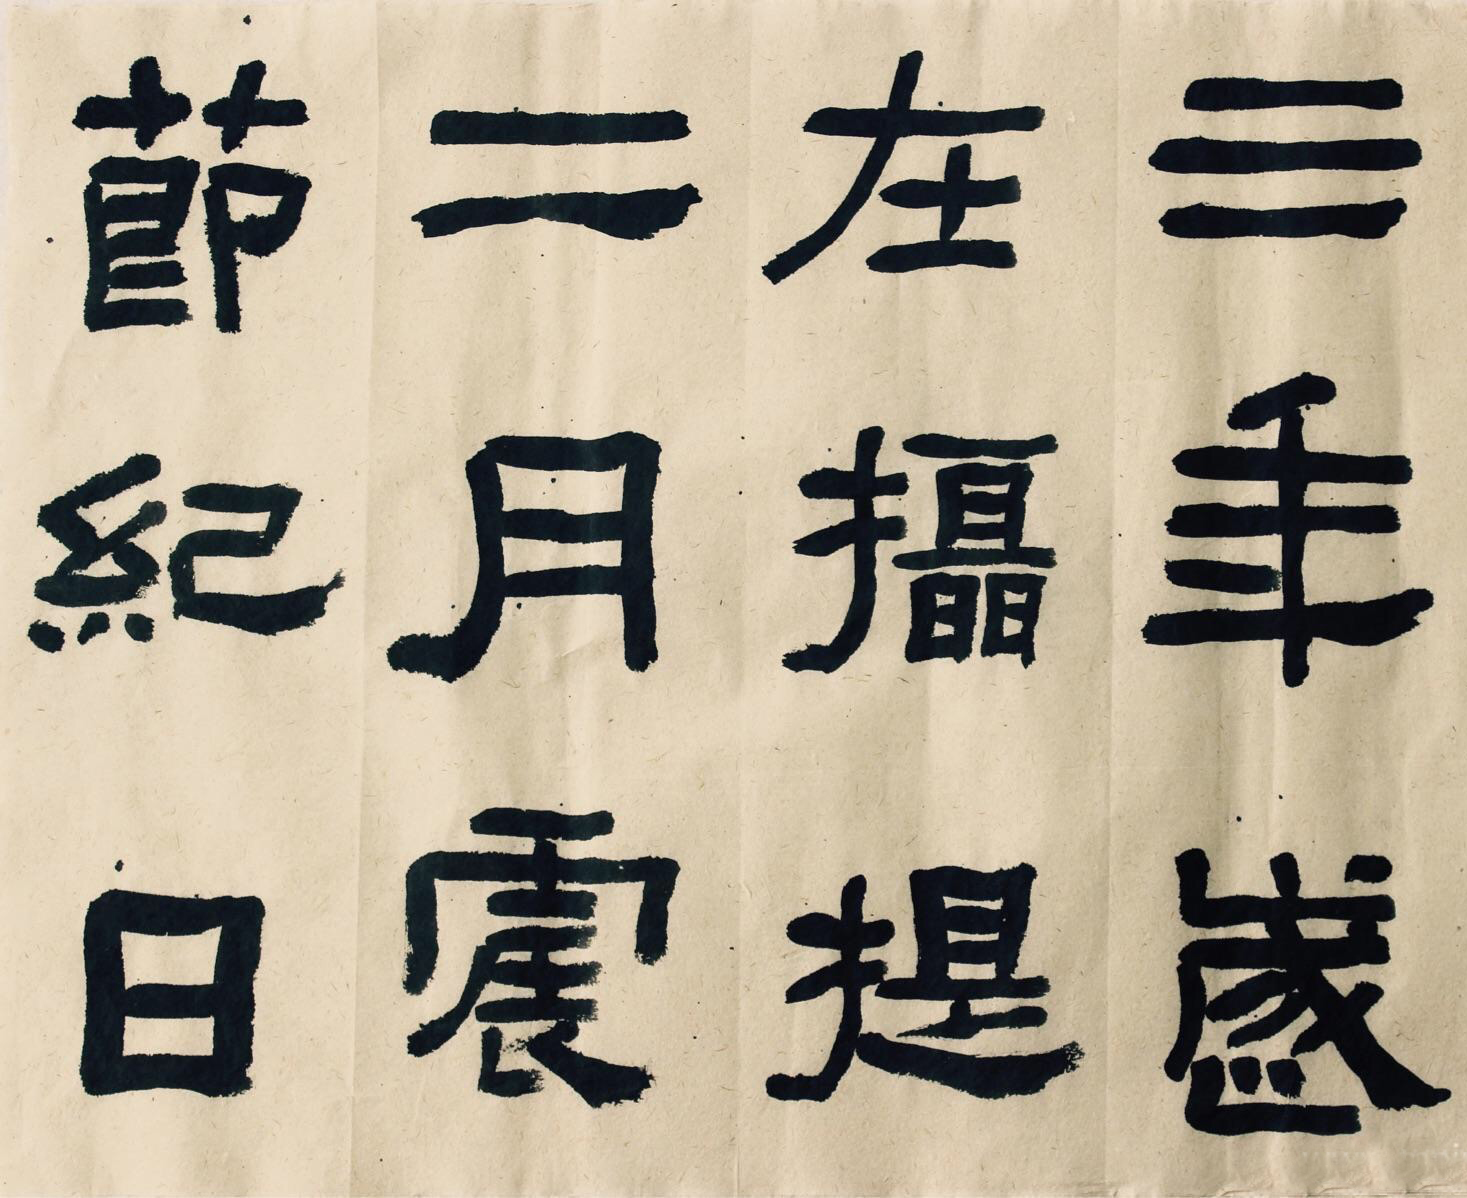 三年歲
在攝提
二月震
節紀日